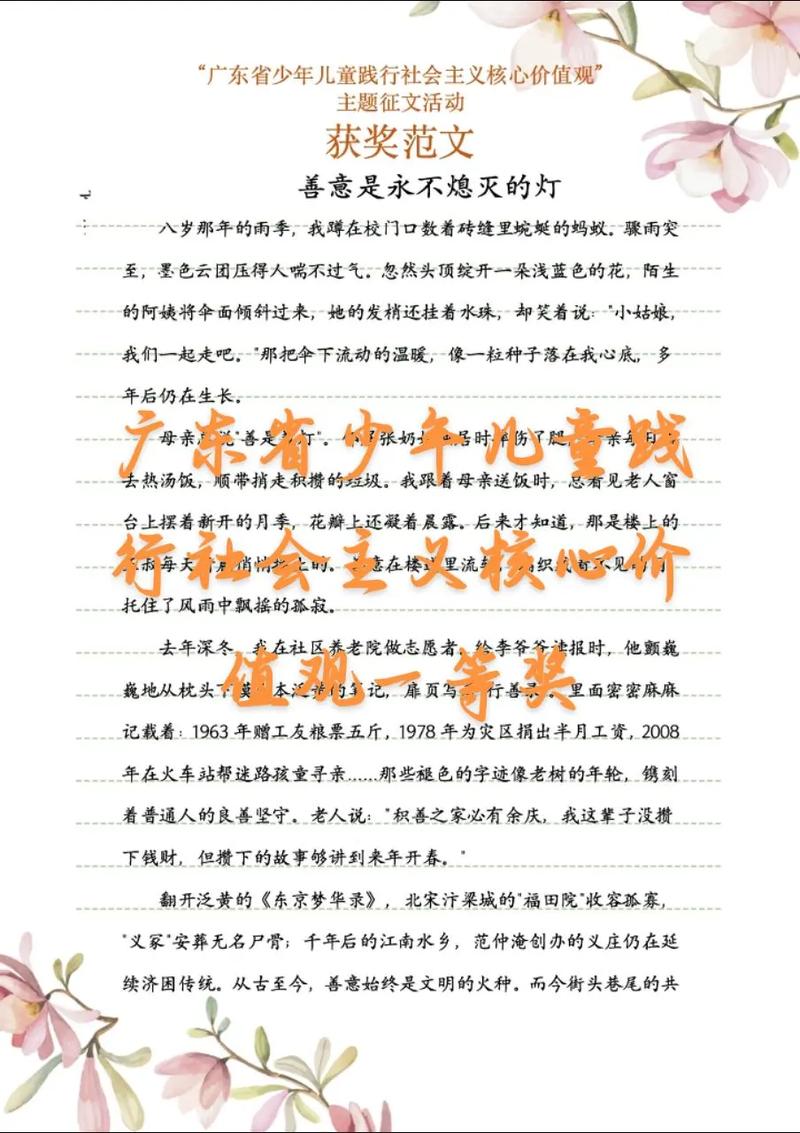 “广东省少年儿童践行社会主义核心价值观”
主题征文活动
获奖范文
善意是永不熄灭的灯
八岁那年的雨季，我蹲在校门口数着砖缝里蜿蜒的蚂蚁。骤雨突
至，墨色云团压得人喘不过气。忽然头顶绽开一朵浅蓝色的花，陌生
的阿姨将伞面倾斜过来，她的发梢还挂着水珠，却笑着说："小姑娘，
我们一起走吧。"那把伞下流动的温暖，像一粒种子落在我心底，多
年后仍在生长。
广东省少年儿童践
行社会主义核心价
值观一等奖
母亲 说"善是 灯"。 张奶 居时 伤了腿 亲每
去热汤饭，顺带捎走积攒的垃圾。我跟着母亲送饭时，总看见老人窗
台上摆着新开的月季，花瓣上还凝着晨露。后来才知道，那是楼上的
叔每天 悄悄 上的。善意在楼道里流转， 织 不见的
托住了风雨中飘摇的孤寂。
去年深冬，我在社区养老院做志愿者。给李爷爷读报时，他颤巍
巍地从枕头下 本泛黄的笔记，扉页写 行善录 。里面密密麻麻
记载着：1963 年赠工友粮票五斤，1978 年为灾区捐出半月工资，2008
年在火车站帮迷路孩童寻亲……那些褪色的字迹像老树的年轮，镌刻
着普通人的良善坚守。老人说："积善之家必有余庆，我这辈子没攒
下钱财，但攒下的故事够讲到来年开春。"
翻开泛黄的《东京梦华录》，北宋汴梁城的"福田院"收容孤寡，
"义冢"安葬无名尸骨；千年后的江南水乡，范仲淹创办的义庄仍在延
续济困传统。从古至今，善意始终是文明的火种。而今街头巷尾的共